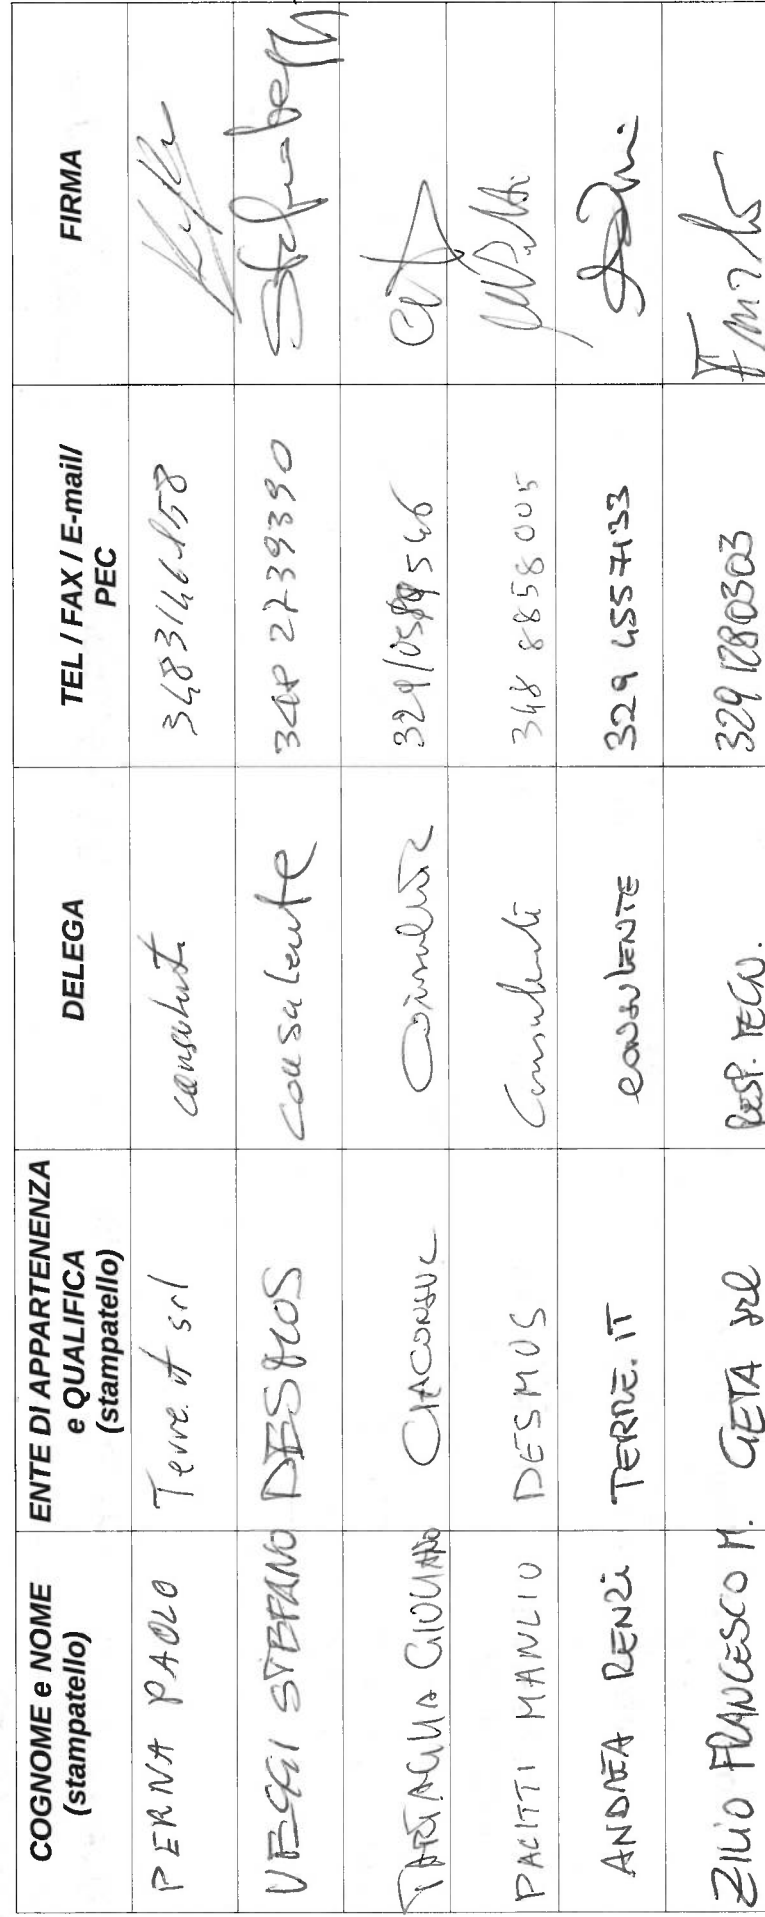 COGNOME e NOME (stampatello) ENTE DI APPARTENENZA e QUALIFICA (stampatello) DELEGA TEL / FAX / E-mail/ PEC FIRMA
PERNA PAOLO Terre.it srl consulente
VEGGI STEFANO DESMOS consulente 348 2239390
TARTAGLIA GIOLIANO consulente
PACITTI MANLIO DESMOS Consulente 348 8858005
ANDREA RENZi TERRE.IT CONSULENTE 329 4557133
ZILIO FRANCESCO M. GETA srl RESP. TECN. 329 1280303